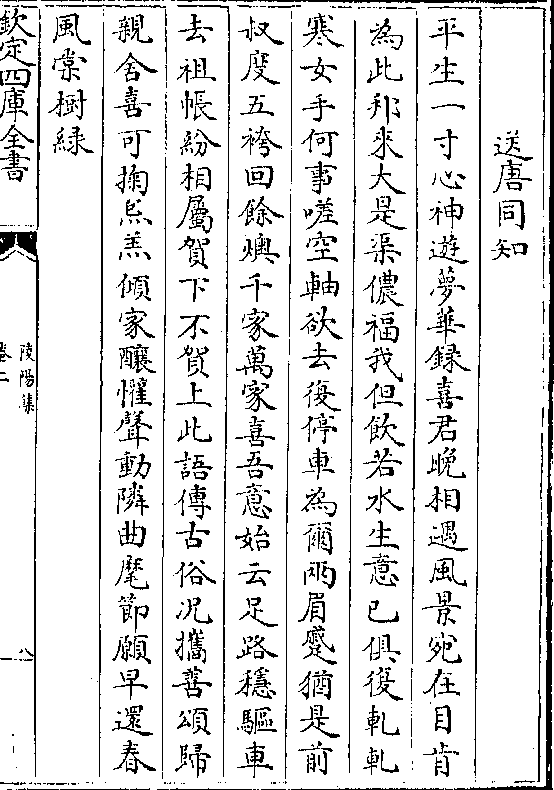 送唐同知
平生一寸心神遊夢華録喜君晚相遇風景宛在目肯
為此邦來大是渠儂福我但飲若水生意已俱復軋軋
寒女手何事嗟空軸欲去復停車為爾兩眉蹙猶是前
叔度五袴回餘燠千家萬家喜吾意始云足路穩驅車
去祖帳紛相屬賀下不賀上此語傳古俗況攜善頌歸
親舍喜可掬炰羔傾家釀懽聲動隣曲麾節願早還春
風棠樹緑
欽定四庫全書
陵陽集
卷二
八